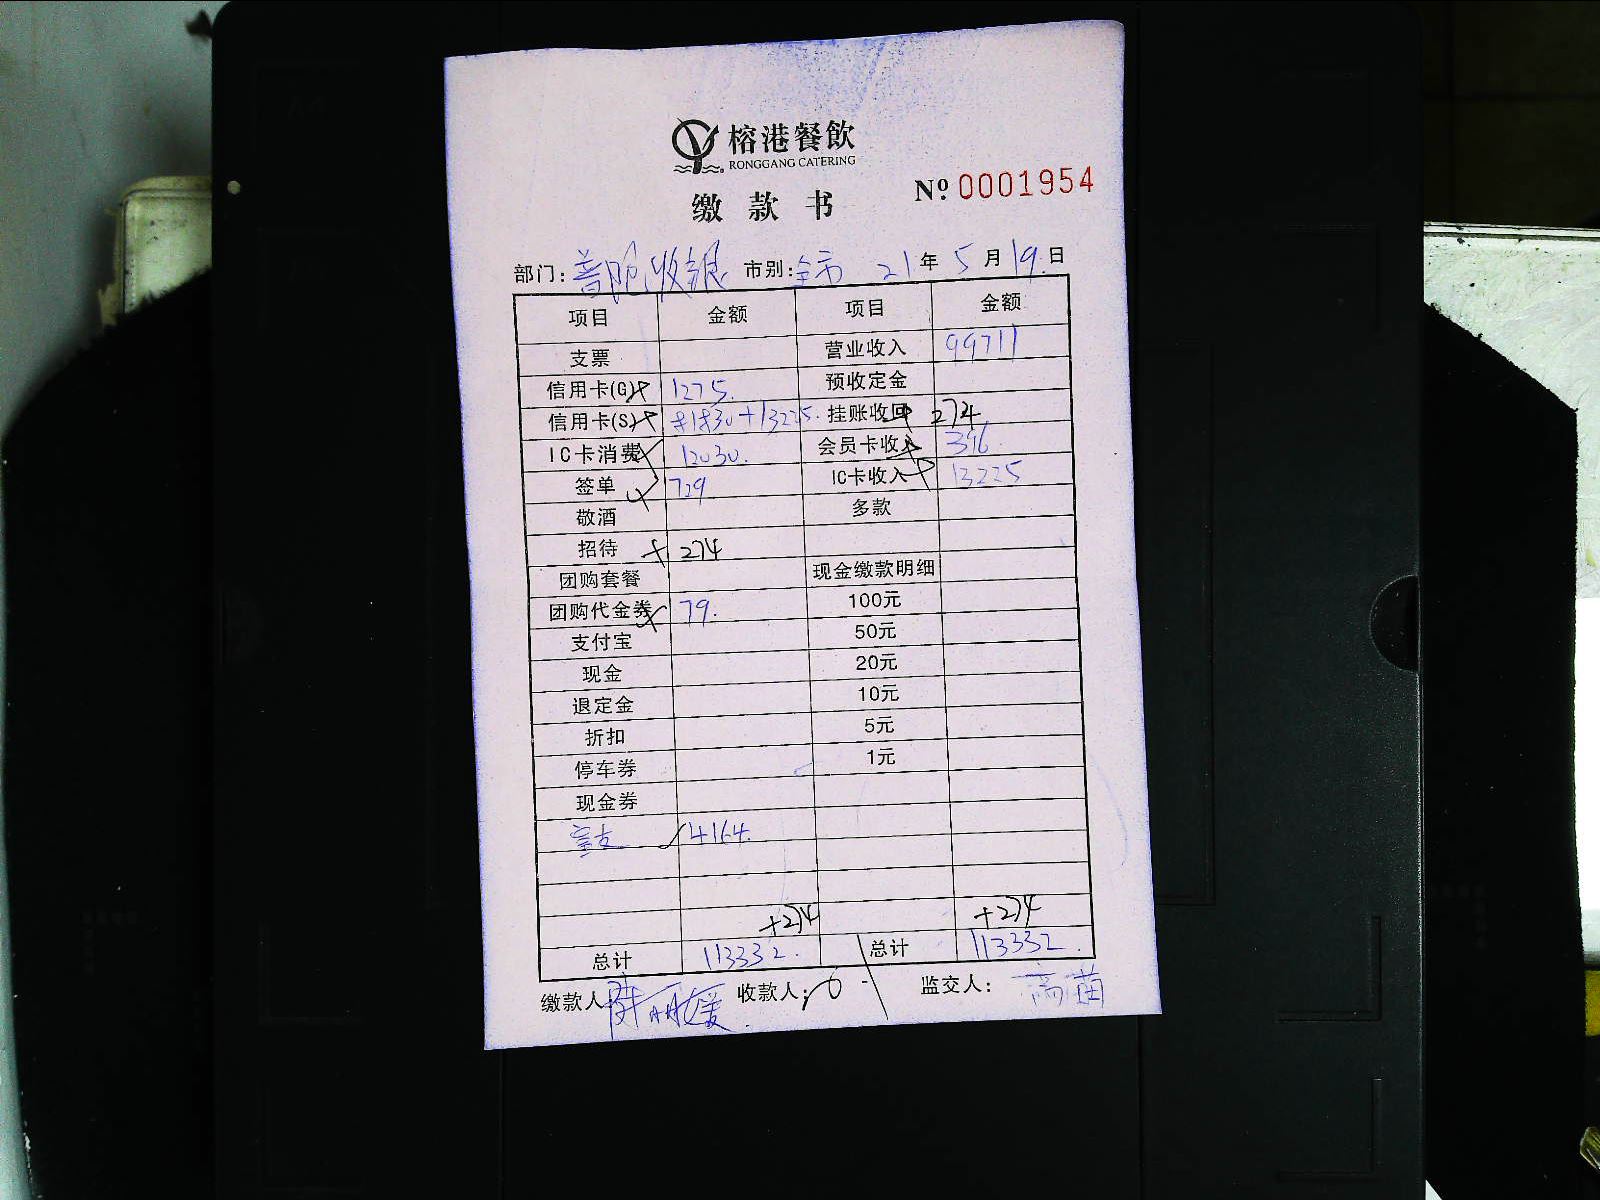 榕港餐飲
RONGGANG CATERING
缴款书 Nº 0001954
部门: 普陀收银 市别: 全市 21年5月19日
项目 金额 项目 金额
支票 营业收入 99711
信用卡(G) 1275. 预收定金
信用卡(S) 81830+13225. 挂账收回 274
IC卡消费 12030. 会员卡收入 396
签单 729 IC卡收入 13225
敬酒 多款
招待 274
团购套餐 现金缴款明细
团购代金券 79. 100元
支付宝 50元
现金 20元
退定金 10元
折扣 5元
停车券 1元
现金券
4164.
+274 +274
总计 113332. 总计 113332.
缴款人 收款人: 监交人: 高苗